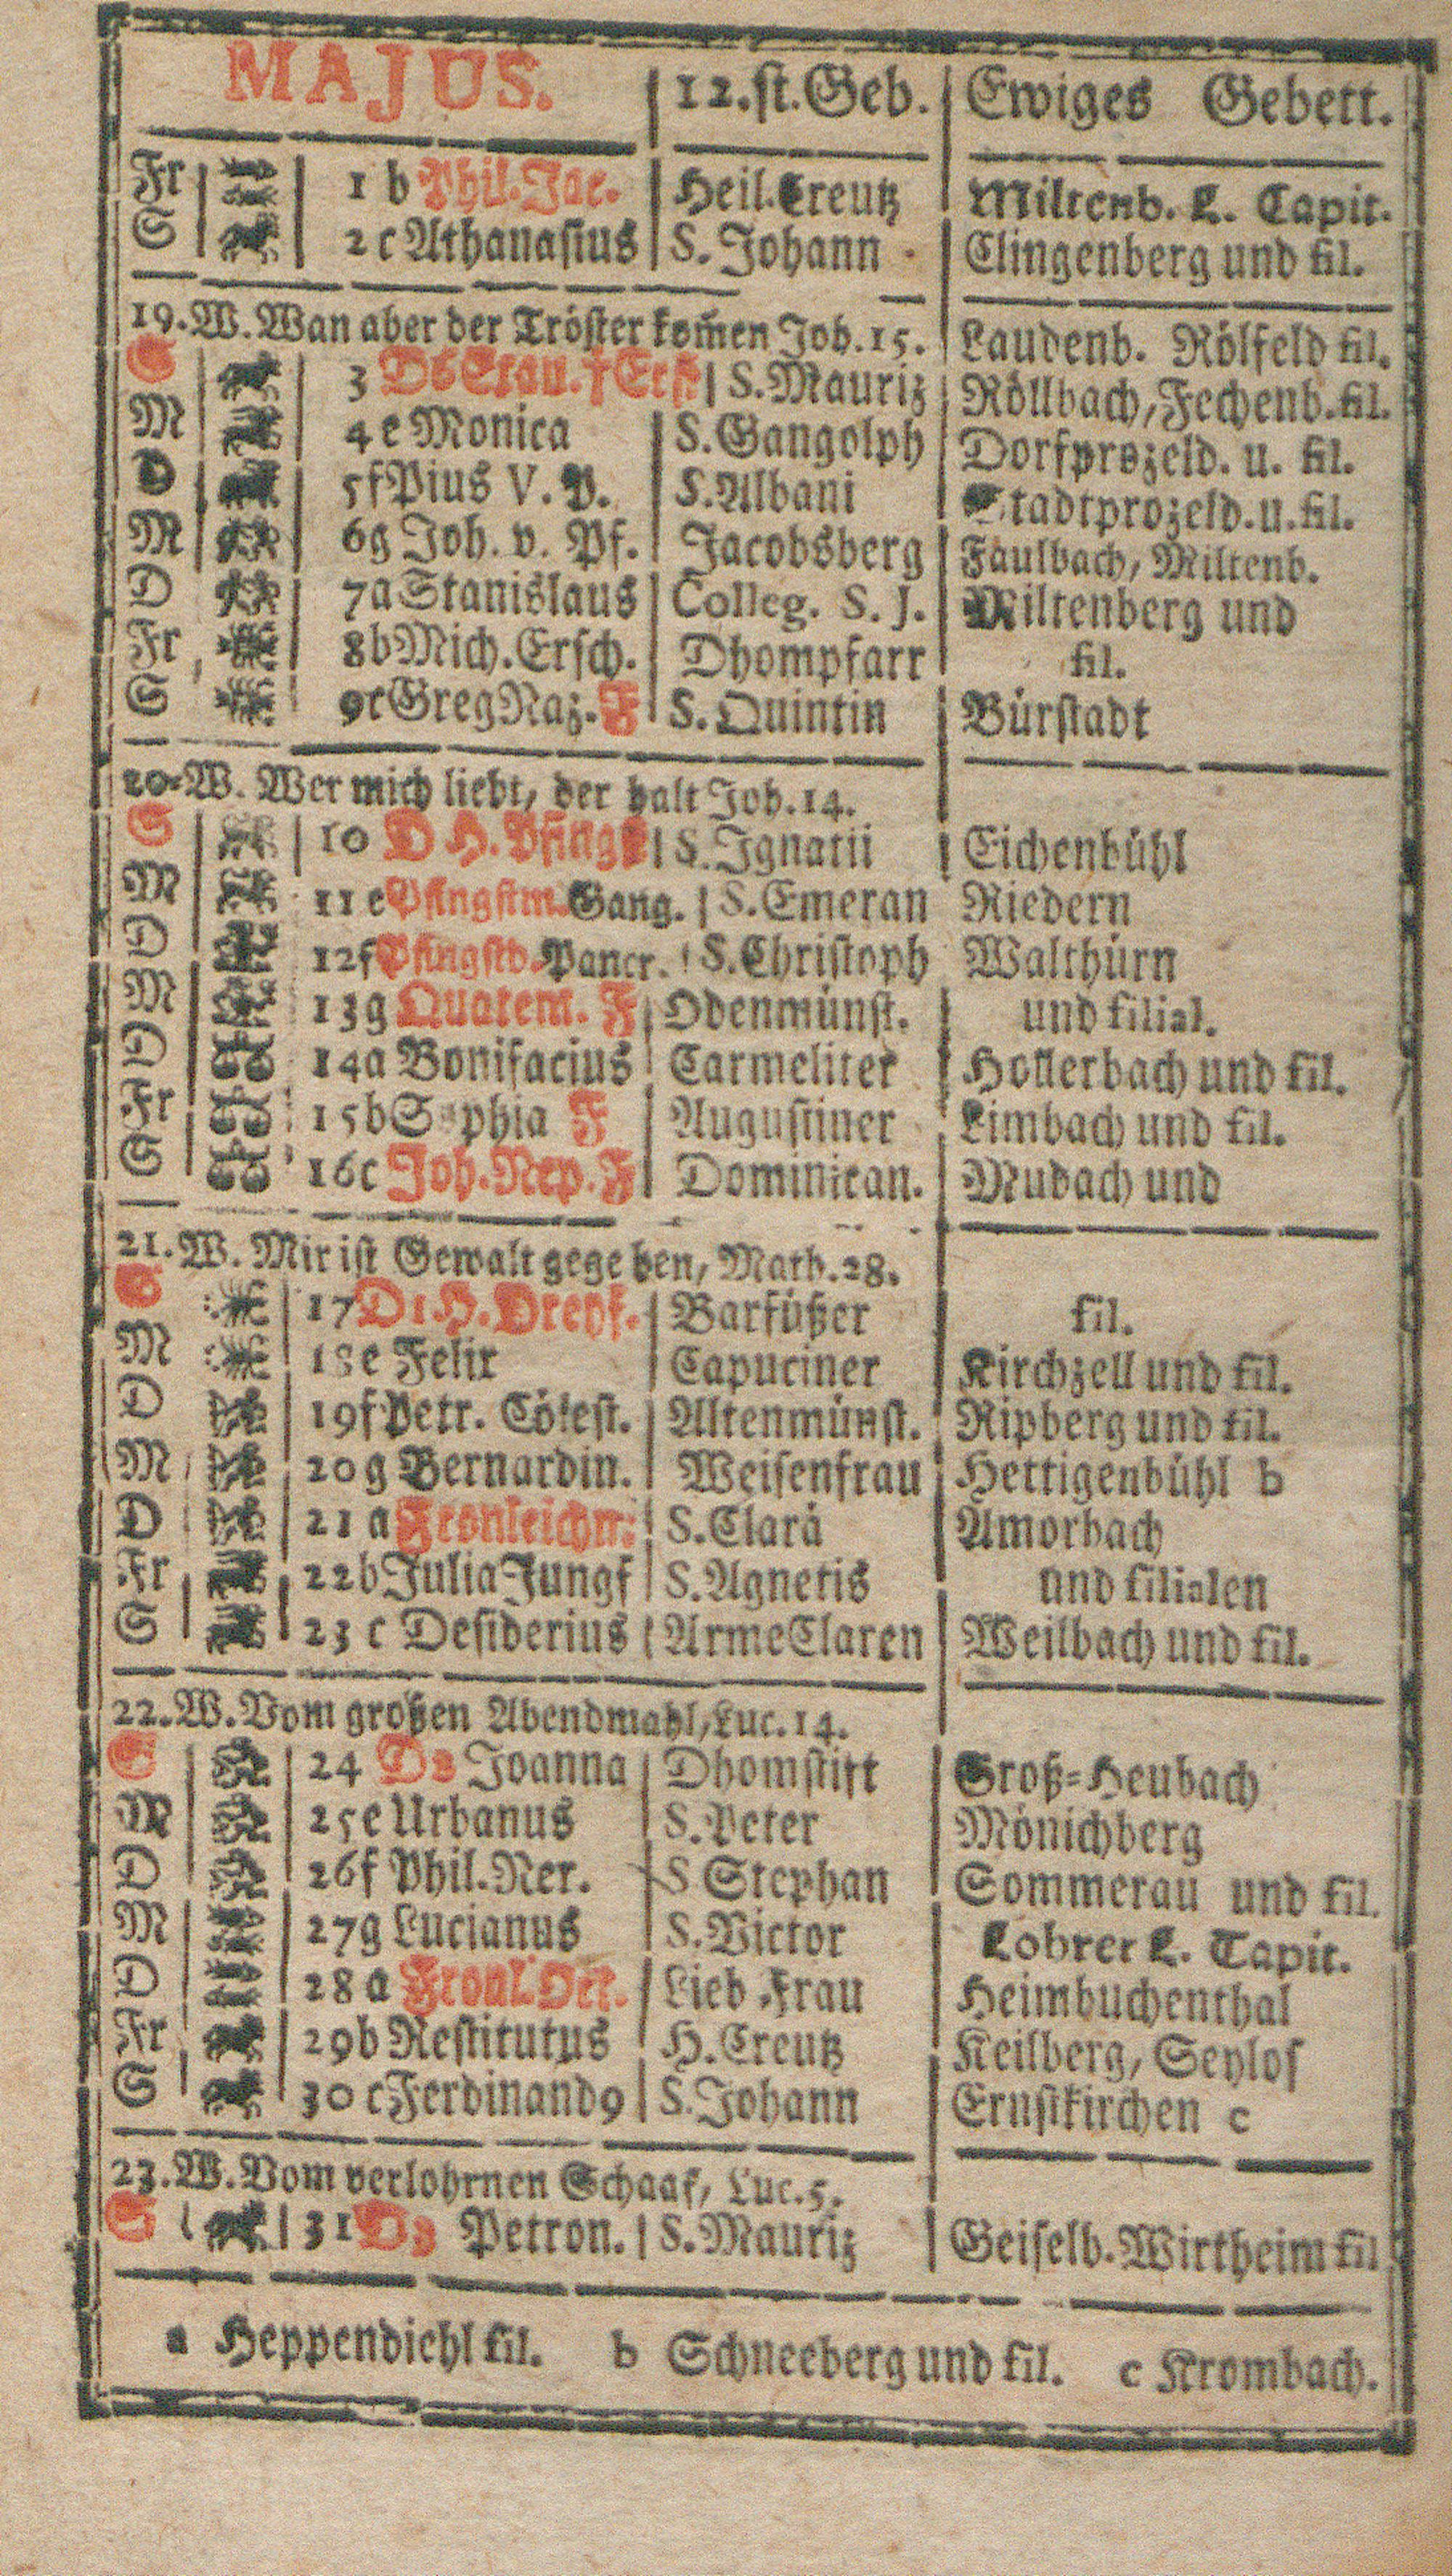 MAJUS. 12. st. Geb. Ewiges Gebett.
Fr 1 b Phil. Jac. Heil. Creutz Miltenb. L. Capit.
S 2 c Athanasius S. Johann Clingenberg und fil.
19. W. Wan aber der Tröster kom̃en Joh. 15. Laudenb. Rölfeld fil.
S 3 D6 Exau. † Erf S. Mauriz Röllbach, Fechenb. fil.
M 4 e Monica S. Gangolph Dorfprozeld. u. fil.
D 5 f Pius V. P. S. Albani Stadtprozeld. u. fil.
M 6 g Joh. v. Pf. Jacobsberg Faulbach, Miltenb.
D 7 a Stanislaus Colleg. S. J. Miltenberg und
Fr 8 b Mich. Ersch. Dhompfarr fil.
S 9 c Greg Naz. F S. Quintin Bürstadt
20. W. Wer mich liebt, der halt Joh. 14.
S 10 D H. Pfingst S. Ignatii Eichenbühl
M 11 e Pfingstm. Gang. S. Emeran Riedern
D 12 f Pfingstd. Pancr. S. Christoph Walthürn
M 13 g Quatem. F Odenmünst. und filial.
D 14 a Bonifacius Carmeliter Hollerbach und fil.
Fr 15 b Sophia F Augustiner Limbach und fil.
S 16 c Joh. Nep. F Dominican. Mudach und
21. W. Mir ist Gewalt gegeben, Math. 28.
S 17 D1 H. Dreyf. Barfüßer fil.
M 18 e Felix Capuciner Kirchzell und fil.
D 19 f Petr. Cölest. Altenmünst. Ripberg und fil.
M 20 g Bernardin. Weisenfrau Hettigenbühl b
D 21 a Fronleichn. S. Clarä Amorbach
Fr 22 b Julia Jungf S. Agnetis und filialen
S 23 c Desiderius Arme Claren Weilbach und fil.
22. W. Vom großen Abendmahl, Luc. 14.
S 24 D2 Joanna Dhomstift Groß-Heubach
M 25 e Urbanus S. Peter Mönichberg
D 26 f Phil. Ner. S Stephan Sommerau und fil.
M 27 g Lucianus S. Victor Lohrer L. Capit.
D 28 a Fronl. Oct. Lieb Frau Heimbuchenthal
Fr 29 b Restitutus H. Creutz Keilberg, Seylof
S 30 c Ferdinand9 S. Johann Ernstkirchen c
23. W. Vom verlohrnen Schaaf, Luc. 5.
S 31 D3 Petron. S. Mauriz Geiselb. Wirtheim fil
a Heppendiehl fil. b Schneeberg und fil. c Krombach.